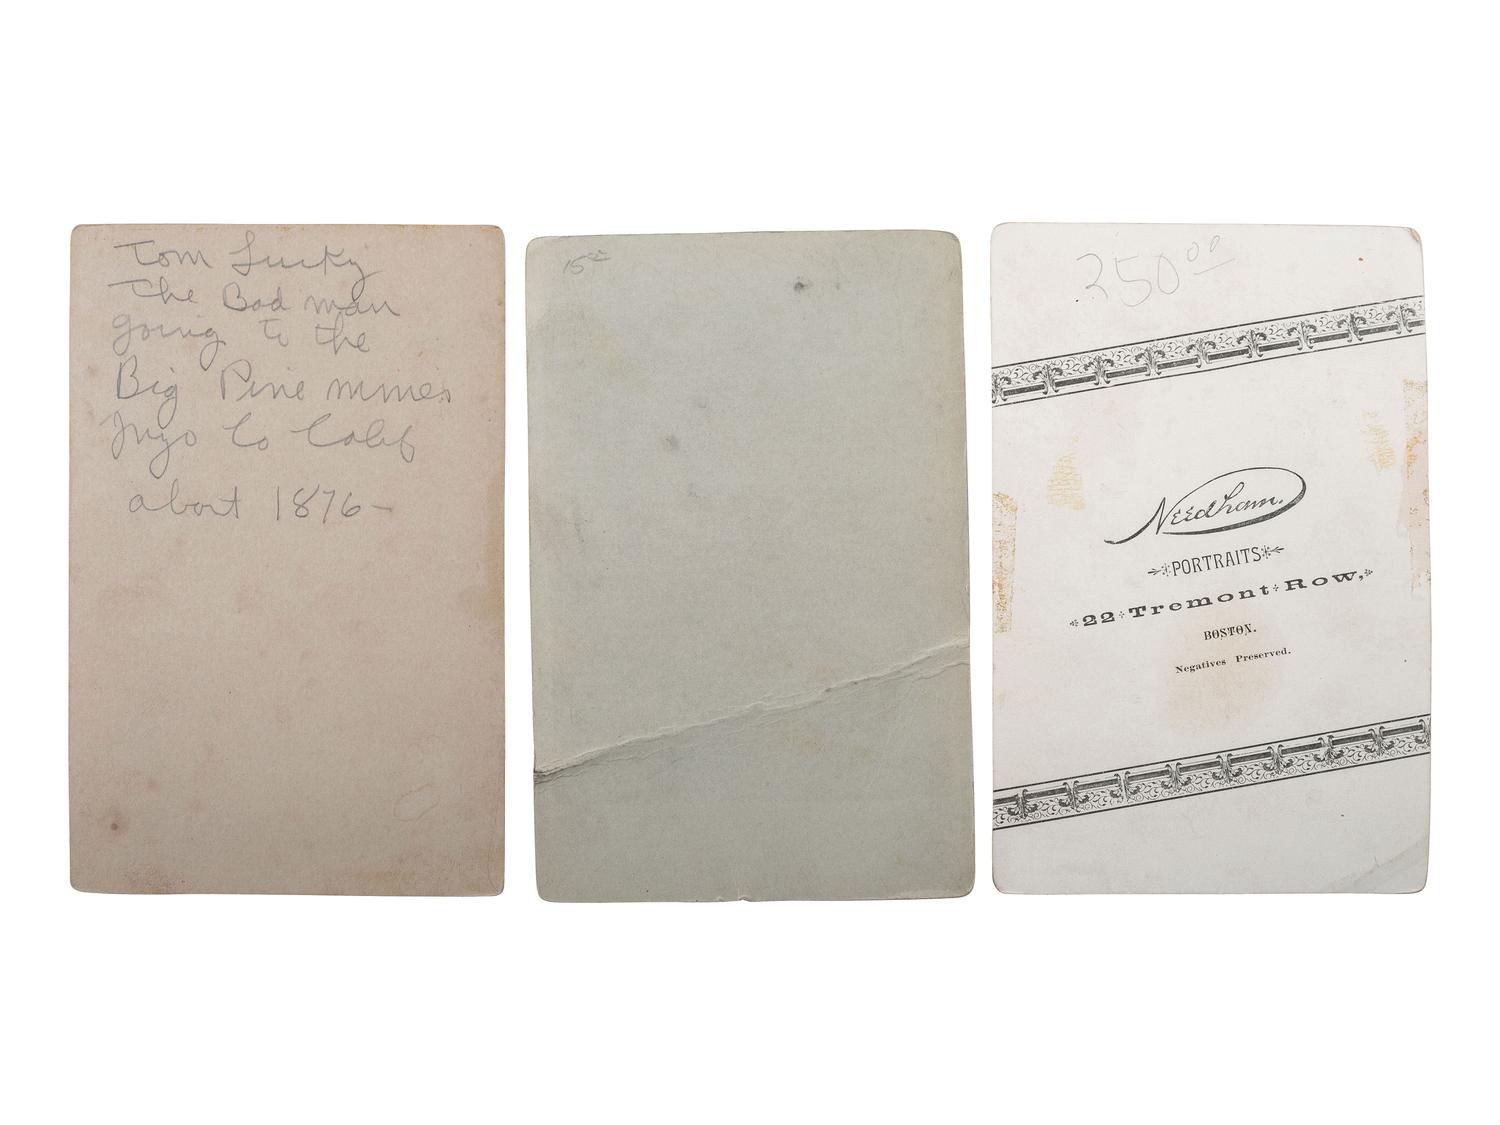 Tom Lucky
The Bad man
going to the
Big Pine mines
Inyo Co Calif
about 1876-
15⁰⁰
250⁰⁰
Needham.
PORTRAITS
22 Tremont Row,
BOSTON.
Negatives Preserved.